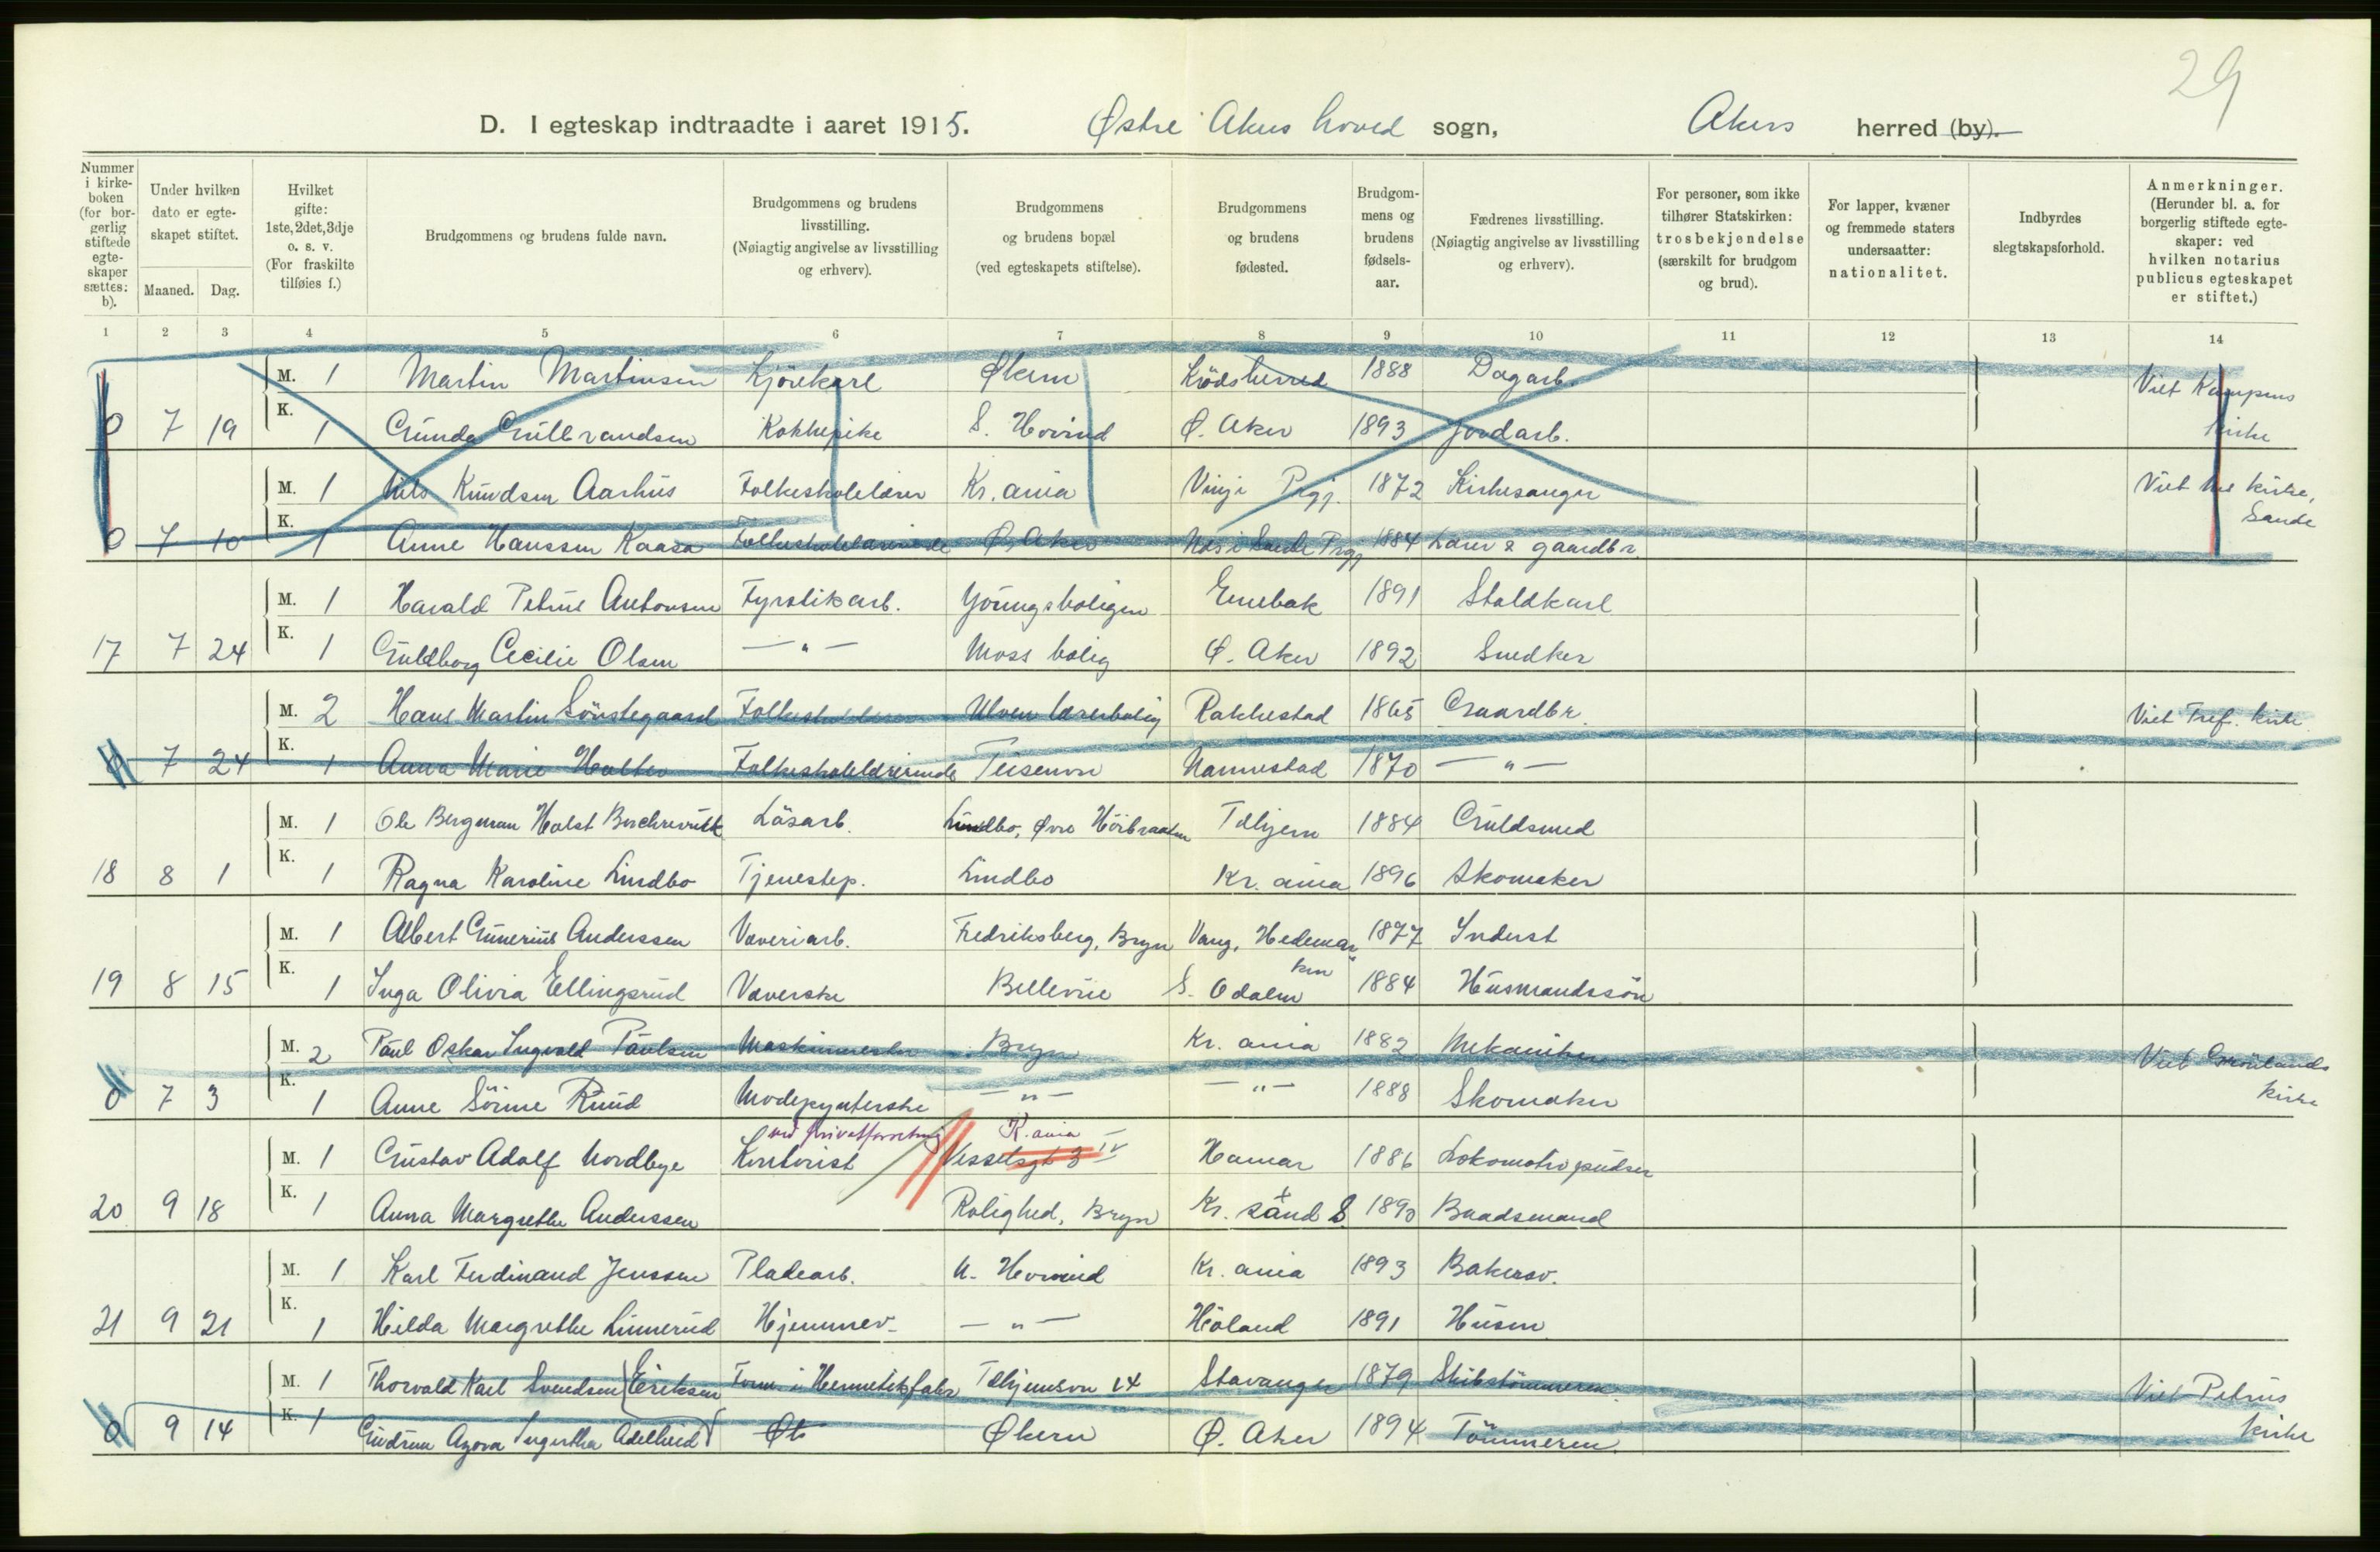 29
D. I egteskap indtraadte i aaret 1915. Østre Akers hoved sogn, Akers herred (by).
Nummer i kirke-boken (for bor-gerlig stiftede egte-skaper sættes: b).
Under hvilken dato er egte-skapet stiftet.
Maaned. Dag.
Hvilket gifte: 1ste, 2det, 3dje o. s. v. (For fraskilte tilføies f.)
Brudgommens og brudens fulde navn.
Brudgommens og brudens livsstilling. (Nøiagtig angivelse av livsstilling og erhverv).
Brudgommens og brudens bopæl (ved egteskapets stiftelse).
Brudgommens og brudens fødested.
Brudgom-mens og brudens fødsels-aar.
Fædrenes livsstilling. (Nøiagtig angivelse av livsstilling og erhverv).
For personer, som ikke tilhører Statskirken: trosbekjendelse (særskilt for brudgom og brud).
For lapper, kvæner og fremmede staters undersaatter: nationalitet.
Indbyrdes slegtskapsforhold.
Anmerkninger. (Herunder bl. a. for borgerlig stiftede egte-skaper: ved hvilken notarius publicus egteskapet er stiftet.)
1 2 3 4 5 6 7 8 9 10 11 12 13 14
M. 1 Martin Martinsen Kjörekarl Økern Krödsherred 1888 Dagarb. Viet Kampens
0 7 19 K. 1 Gunda Gulbrandsen Kokkepike S. Hovind Ø. Aker 1893 Jordarb. kirke
M. 1 Nils Knudsen Aarhus Folkeskolelærer Kr.ania Vinje Prgj. 1872 Kirkesanger Viet kirke,
0 7 10 K. 1 Anne Hanssen Kaasa Folkeskolelærerinde Ø. Aker Nes i Sande Prgj 1884 Lærer & gaardbr. Sande
M. 1 Harald Petrus Antonsen Fyrstikarb. Youngsboligen Enebak 1891 Staldkarl
17 7 24 K. 1 Guldborg Cecilie Olsen — " — Moss bolig Ø. Aker 1892 Snedker
M. 2 Hans Martin Sönstegaard Folkeskolelærer Ulven lærerbolig Rakkestad 1865 Gaardbr. Viet Tref. kirke
0 7 24 K. 1 Anna Marie Holter Folkeskolelærerinde Teisenvn Nannestad 1870 — " —
M. 1 Ole Bergman Holst Borchrevink Läsarb. Lindbo, Øvre Höibraaten Tdhjem 1884 Guldsmed
18 8 1 K. 1 Ragna Karoline Lindbo Tjenestep. Lindbo Kr.ania 1896 Skomaker
M. 1 Albert Gunerius Anderssen Væveriarb. Fredriksberg, Bryn Vang, Hedemar- 1877 Inderst
ken
19 8 15 K. 1 Inga Olivia Ellingsrud Væverske Bellevue S. Odalen 1884 Husmandssön
M. 2 Paul Oskar Ingvald Paulsen Maskinmester Bryn Kr.ania 1882 Mekaniker Viet Grönlands
0 7 3 K. 1 Anne Sörine Ruud Modepynterske — " — — " — 1888 Skomaker kirke
ved privatforretning K.ania
M. 1 Gustav Adolf Nordbye Kontorist Vesselsgt 3 IV Hamar 1886 Lokomotivpudser
20 9 18 K. 1 Anna Margrethe Anderssen Rolighed, Bryn Kr.sand S. 1890 Baadsmand
M. 1 Karl Ferdinand Jenssen Pladearb. N. Hovind Kr.ania 1893 Bakersv.
21 9 21 K. 1 Hilda Margrethe Linnerud Hjemmev. — " — Höland 1891 Husm.
M. 1 Thorvald Karl Svendsen Eriksen Form. i Hermetikfabr Tdhjemsvn 14 Stavanger 1879 Skibstömmerm. Viet Petrus
0 9 14 K. 1 Gudrun Agora Ingertha Adelheid Økern Ø. Aker 1894 Tömmerm. kirke